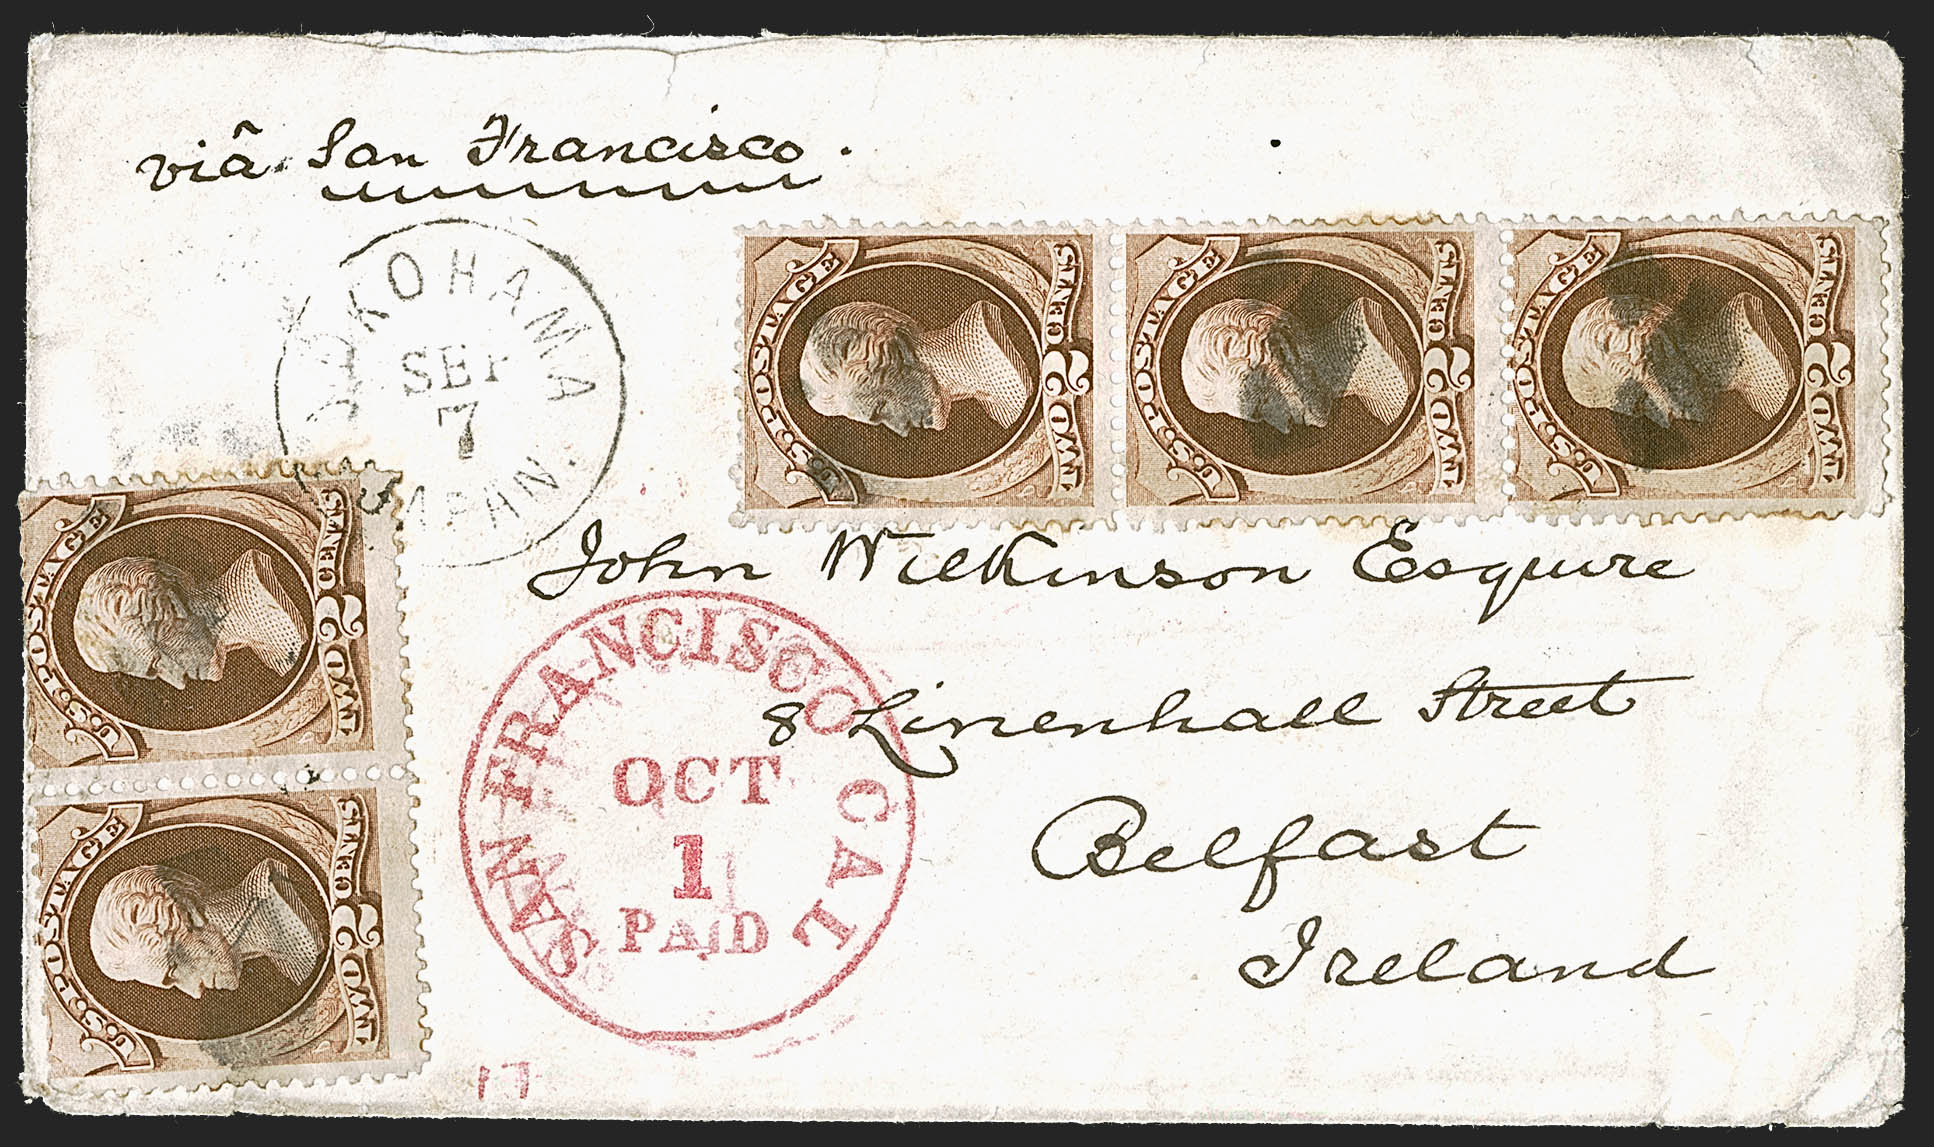 viâ San Francisco.
YOKOHAMA
SEP
7
JAPAN.
U.S. POSTAGE
TWO 2 CENTS
U.S. POSTAGE
TWO 2 CENTS
U.S. POSTAGE
TWO 2 CENTS
John Wilkinson Esquire
8 Linenhall Street
Belfast
Ireland
SAN FRANCISCO CAL
OCT
1
PAID
U.S. POSTAGE
TWO 2 CENTS
U.S. POSTAGE
TWO 2 CENTS